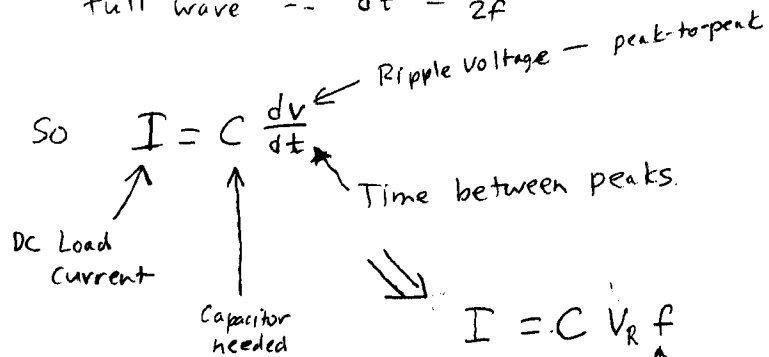 full wave -- dt = 1/2f
Ripple Voltage — peak-to-peak
So I = C dv/dt
Time between peaks.
DC Load
Current
Capacitor
needed
I = C V_R f